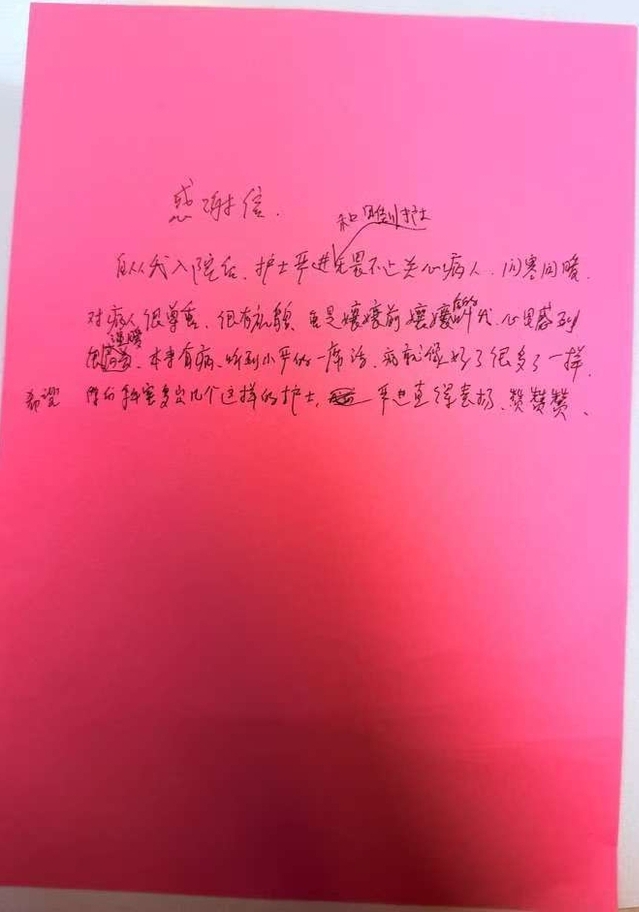 感谢信.
和 护士
自从我入院后、护士严进无畏不止关心病人、问寒问暖、
对病人很尊重、很有礼貌、 是嬢嬢前嬢嬢 、心里感到
温暖
很 、本来有病、听到小严的一席话、病就像好了很多了一样、
希望 科室多出几个这样的护士、 严也直得表扬、赞赞赞、